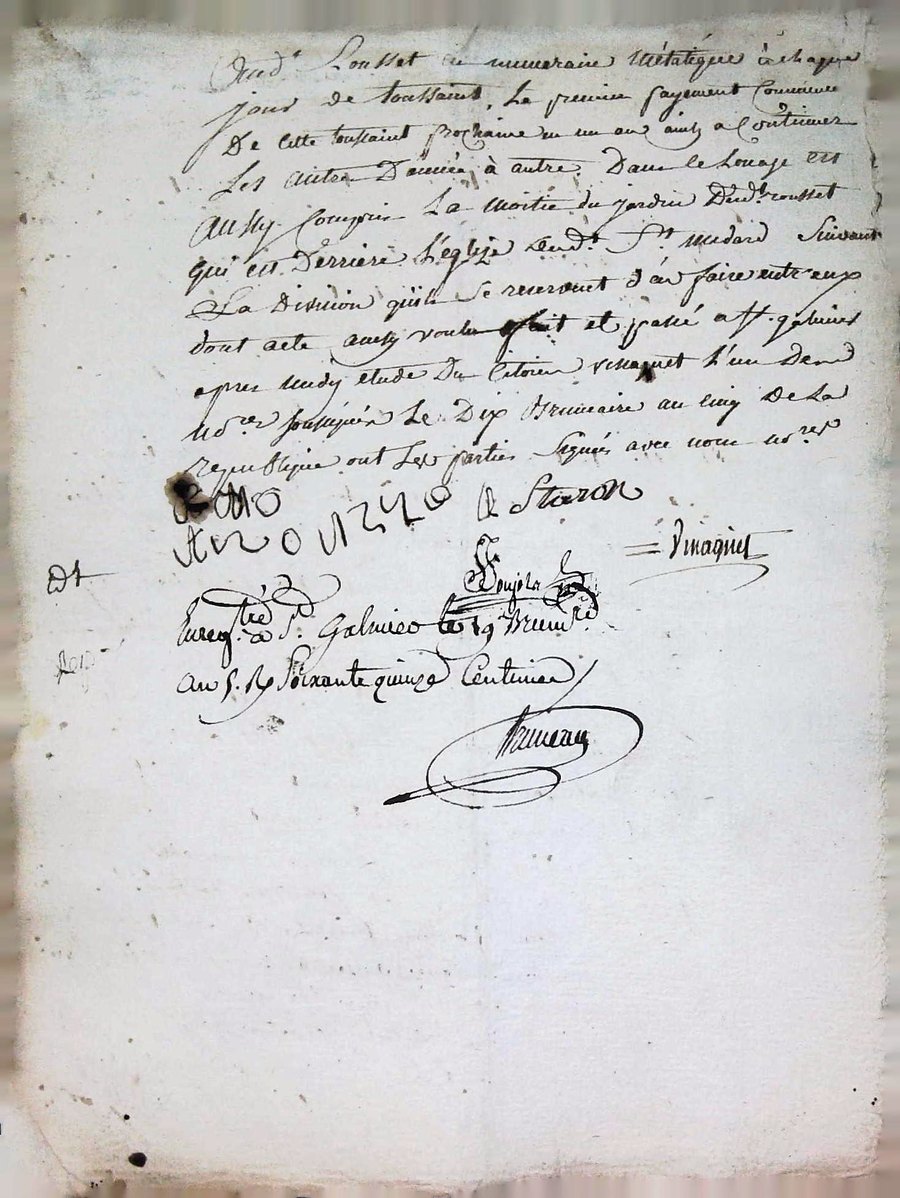 Aud.t Rousset en numeraire métalique à chaque
jour de toussaint, Le premier payement Commence
De cette toussaint prochaine en un an ainsy a Continuer
Les autres D'année à autre. Dans le Louage est
Aussy Compris La moitié du jardin Dud.t rousset
qui est Derriere L'eglize dud.t S.t medard Suivant
La Division qu'ils se reservent d'en faire entre eux
dont acte ainsy voulu fait et passé a S.t galmier
apres midy étude Du Citoyen vinagnet L'un Des
No.res soussignés Le Dix Brumaire an cinq De La
republique ont Les parties Signés avec nous no.res
Staron
Vinaignet
Dt
Enreg.tré à S.t Galmier le 19 Brum.re
an 5. R Soixante quinze Centimes
Bruneau